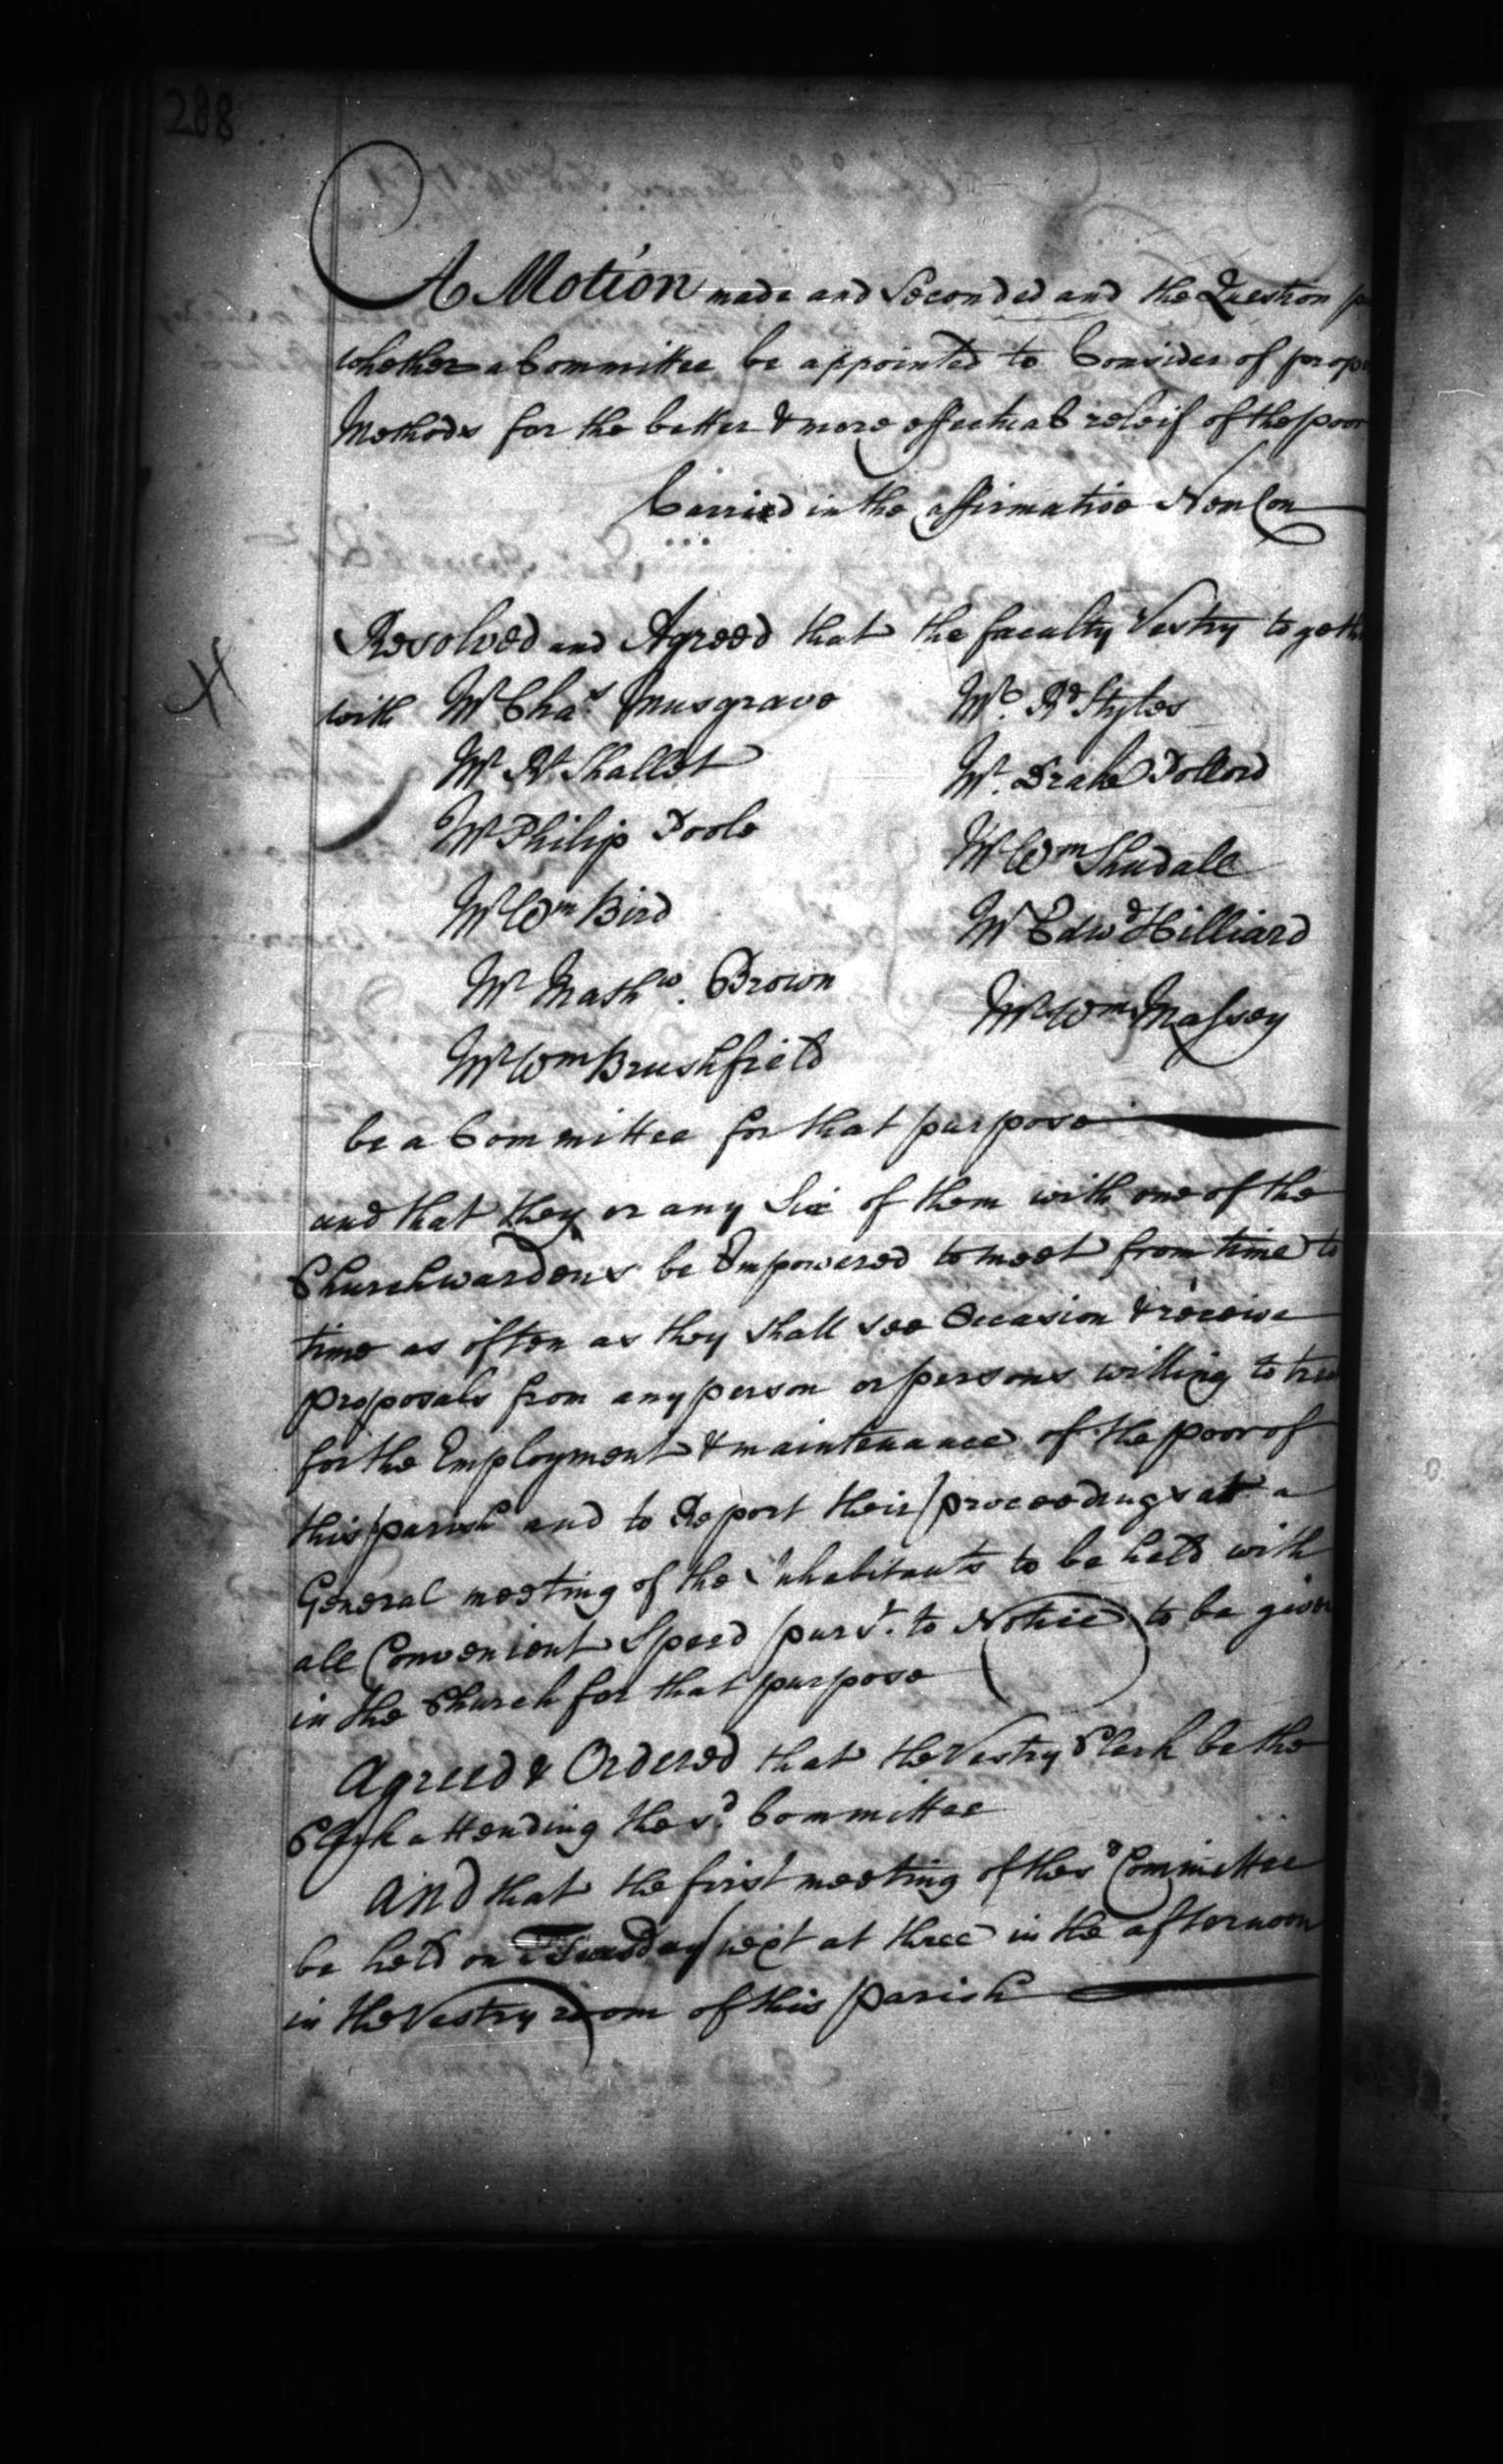 288
A Motion made and Seconded and the Question
whether a Committee be appointed to Consider of prop
Methods for the better & more effectual releif of the poor
Carried in the affirmative Nem Con
Resolved and Agreed that the faculty Vestry togeth
with Mr Chas Musgrave Mr. Rd Styles
Mr Rt Shallet Mr. Drake Pollord
Mr Philip Poole Mr Wm Shudall
Mr Wm Bird Mr Edwd Hilliard
Mr Mathw. Brown Mr Wm Massey
Mr Wm Brushfield
be a Committee for that purpose
and that they or any Six of them with one of the
Churchwardens be Empowered to meet from time to
time as often as they shall see Occasion & receive
proposals from any person or persons willing to
for the Employment & maintenance of the poor of
this parish and to Report their proceedings at a
General meeting of the Inhabitants to be held with
all Convenient Speed purst. to Notice to be given
in the Church for that purpose
Agreed & Ordered that the Vestry Clerk be the
Clerk attending the sd. Committee
And that the first meeting of the sd Committee
be held on Tuesday next at three in the afternoon
in the Vestry room of this Parish